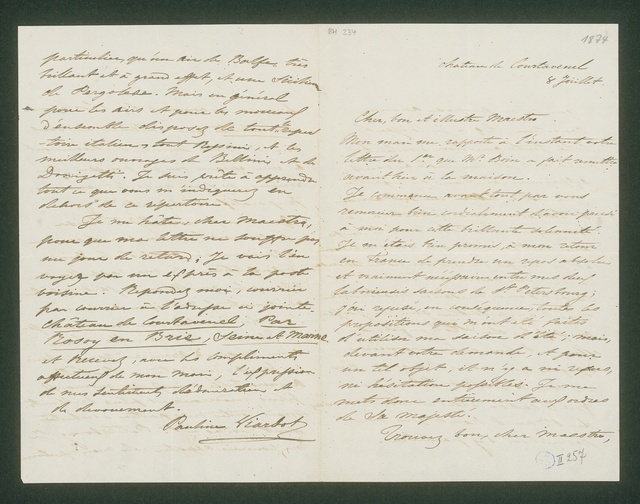 BH 234
1874
Château de Courtavenel
8 Juillet.
Cher, bon et illustre Maestro.
Mon mari me rapporte à l'instant votre
lettre du 1er que Mr a fait remettre
avant hier à la maison.
Je commence avant tout, par vous
remercier bien cordialement d'avoir pensé
à moi pour cette brillante solennité.
Je m'étais bien promis, à mon retour
en France de prendre un repos absolu
et vraiment après mes deux
laborieuses saisons de St Petersbourg;
j'ai refusé, en conséquence, toutes les
propositions qui m'ont été faites
d'utiliser ma saison d'été; mais,
devant votre demande, et pour
un tel objet, il n'y a ni repos,
ni hésitation possibles. Je me
mets donc entièrement aux ordres
de Sa Majesté.
Trouvez bon, cher Maestro,
II 257
particulier, qu'un air de Balfe, très
brillant et à grand effet, et une
de Pergolese. Mais en général
pour les airs et pour les morceaux
d'ensemble disposez de tout
italien, tout Rossini, et les
meilleurs ouvrages de Bellini et de
Donizetti. Je suis prête à apprendre
tout ce que vous m'indiquerez en
dehors de ce répertoire.
Je me hâte, cher Maestro,
pour que ma lettre ne souffre pas
un jour de retard; Je vais l'en-
voyer par un exprès à la poste
voisine. Répondez moi, courrier
par courrier à l'adresse ci jointe.
Château de Courtavenel, Par
Rosoy en Brie, Seine et Marne
et Recevez, avec les compliments
affectueux de mon mari, l'expression
de mes sentiments d'admiration et
de dévouement.
Pauline Viardot